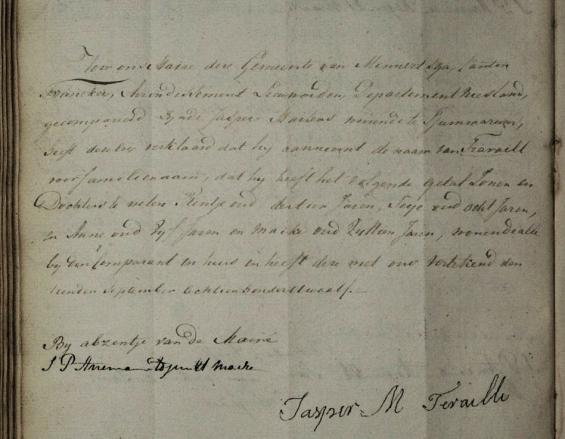 Voor ons Maire der Gemeente van Mennert Sga, Canton
Franeker, Arrondissement Leeuwarden, Departement Vriesland,
gecompareerd zynde Jasper Martens woonende te Tjummarum,
heeft dewelke verklaard dat hy aanneemt de naam van Teraelli
voor familienaam, dat hy heeft het volgende getal Zonen en
Dochters te weten oud dertien Jaren, oud acht Jaren,
en Anne oud Vyf Jaren en Maeike oud Jaren, woonende alle
by den Comparant in huis en heeft deze met ons getekend den
September achttienhonderdtwaalf.
By abzentje van de Maire
S P Annema adjunkt maire
Jasper M Teraelli